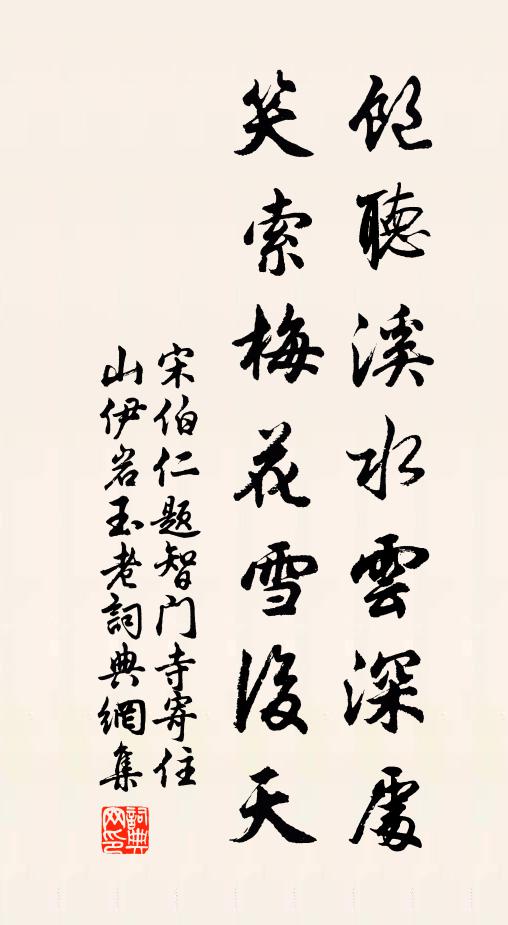 飽聽溪水雲深處
笑索梅花雪後天
宋伯仁题智门寺寄住
山伊岩玉老詞典網集
詞典网印